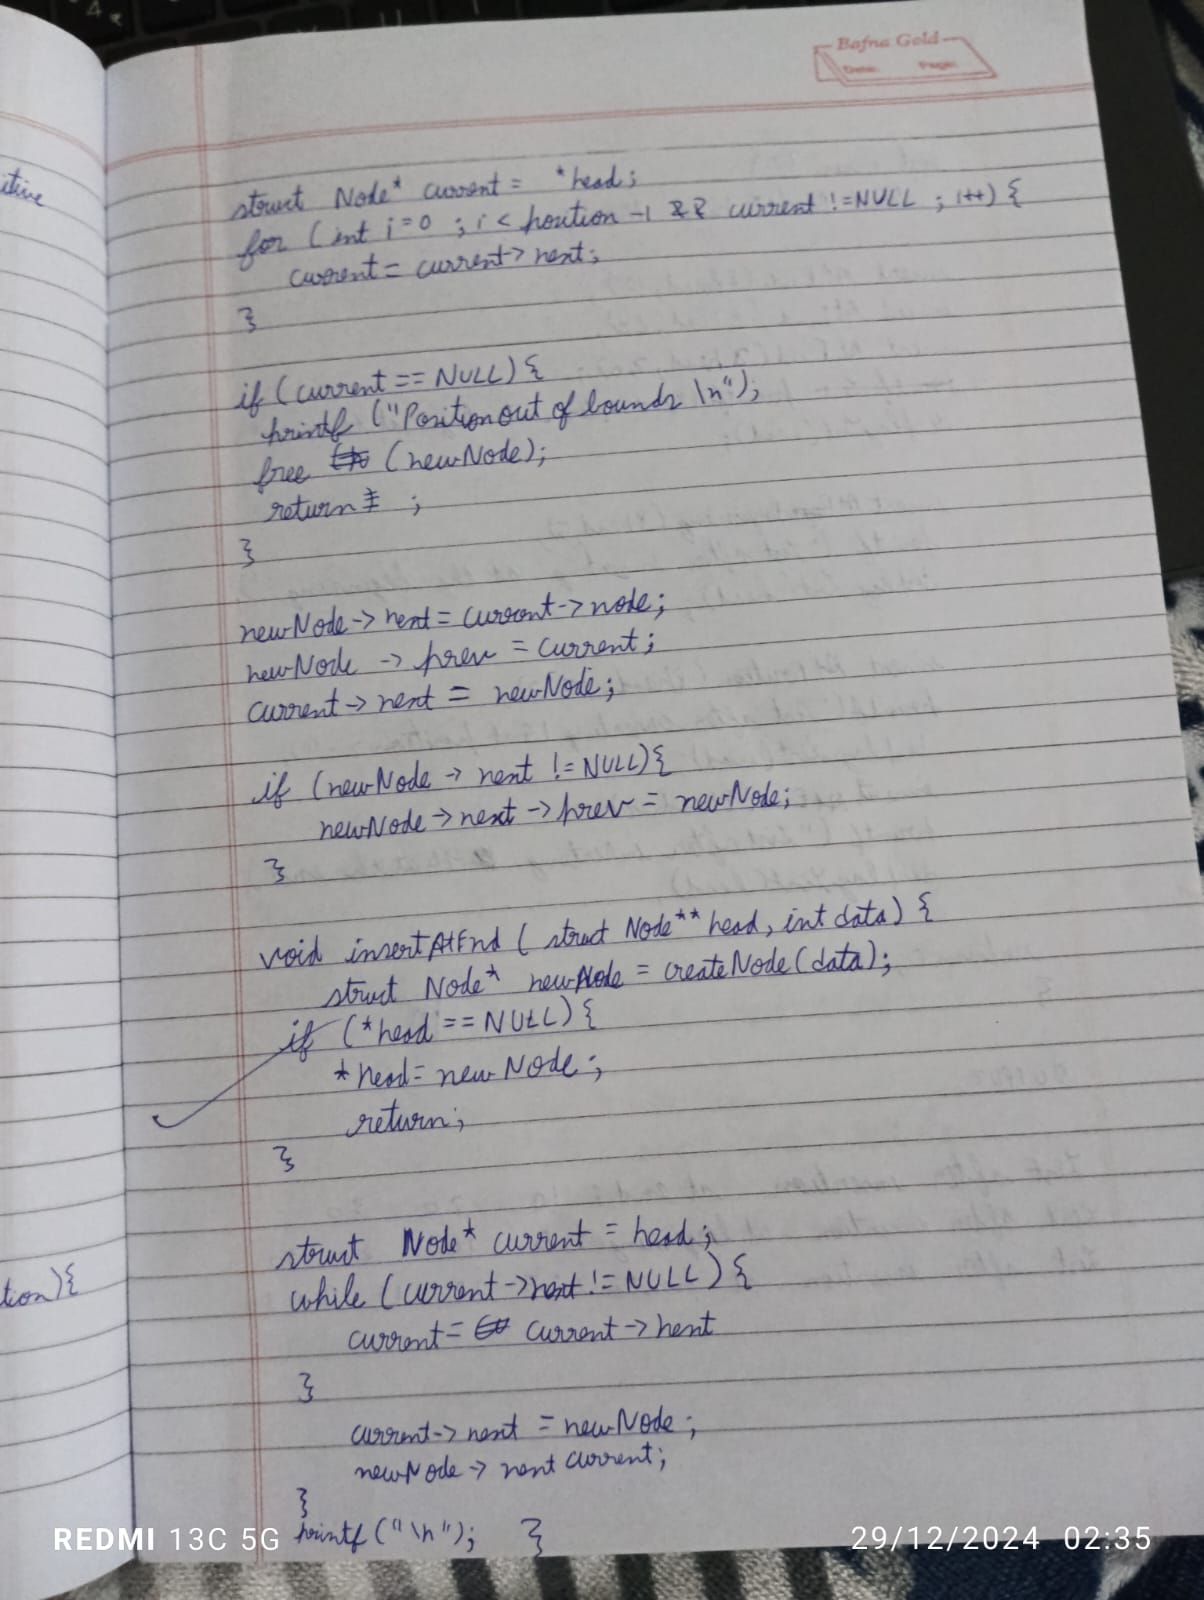 Bafna Gold
Date: Page:
itive
struct Node* current = *head;
for (int i=0 ; i < position -1 && current !=NULL ; i++) {
current = current> next;
}
if (current == NULL) {
printf ("Position out of bounds \n");
free (newNode);
return ;
}
newNode -> next = current -> node;
newNode -> prev = current;
current -> next = newNode;
if (newNode -> next != NULL){
newNode -> next -> prev = newNode;
}
void insertAtEnd ( struct Node** head, int data) {
struct Node* newNode = createNode (data);
if (*head == NULL) {
*head = newNode;
return;
}
tion){
struct Node* current = head;
while (current -> next != NULL) {
current = current -> next
}
current -> next = newNode;
newNode -> next current;
}
printf ("\n"); }
REDMI 13C 5G
29/12/2024 02:35